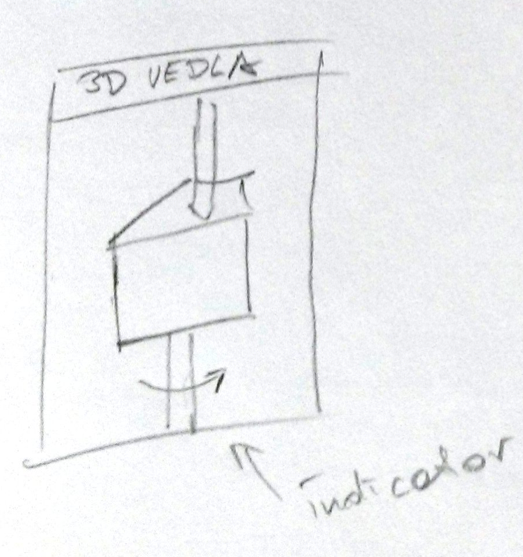 3D VEDLA
indicator